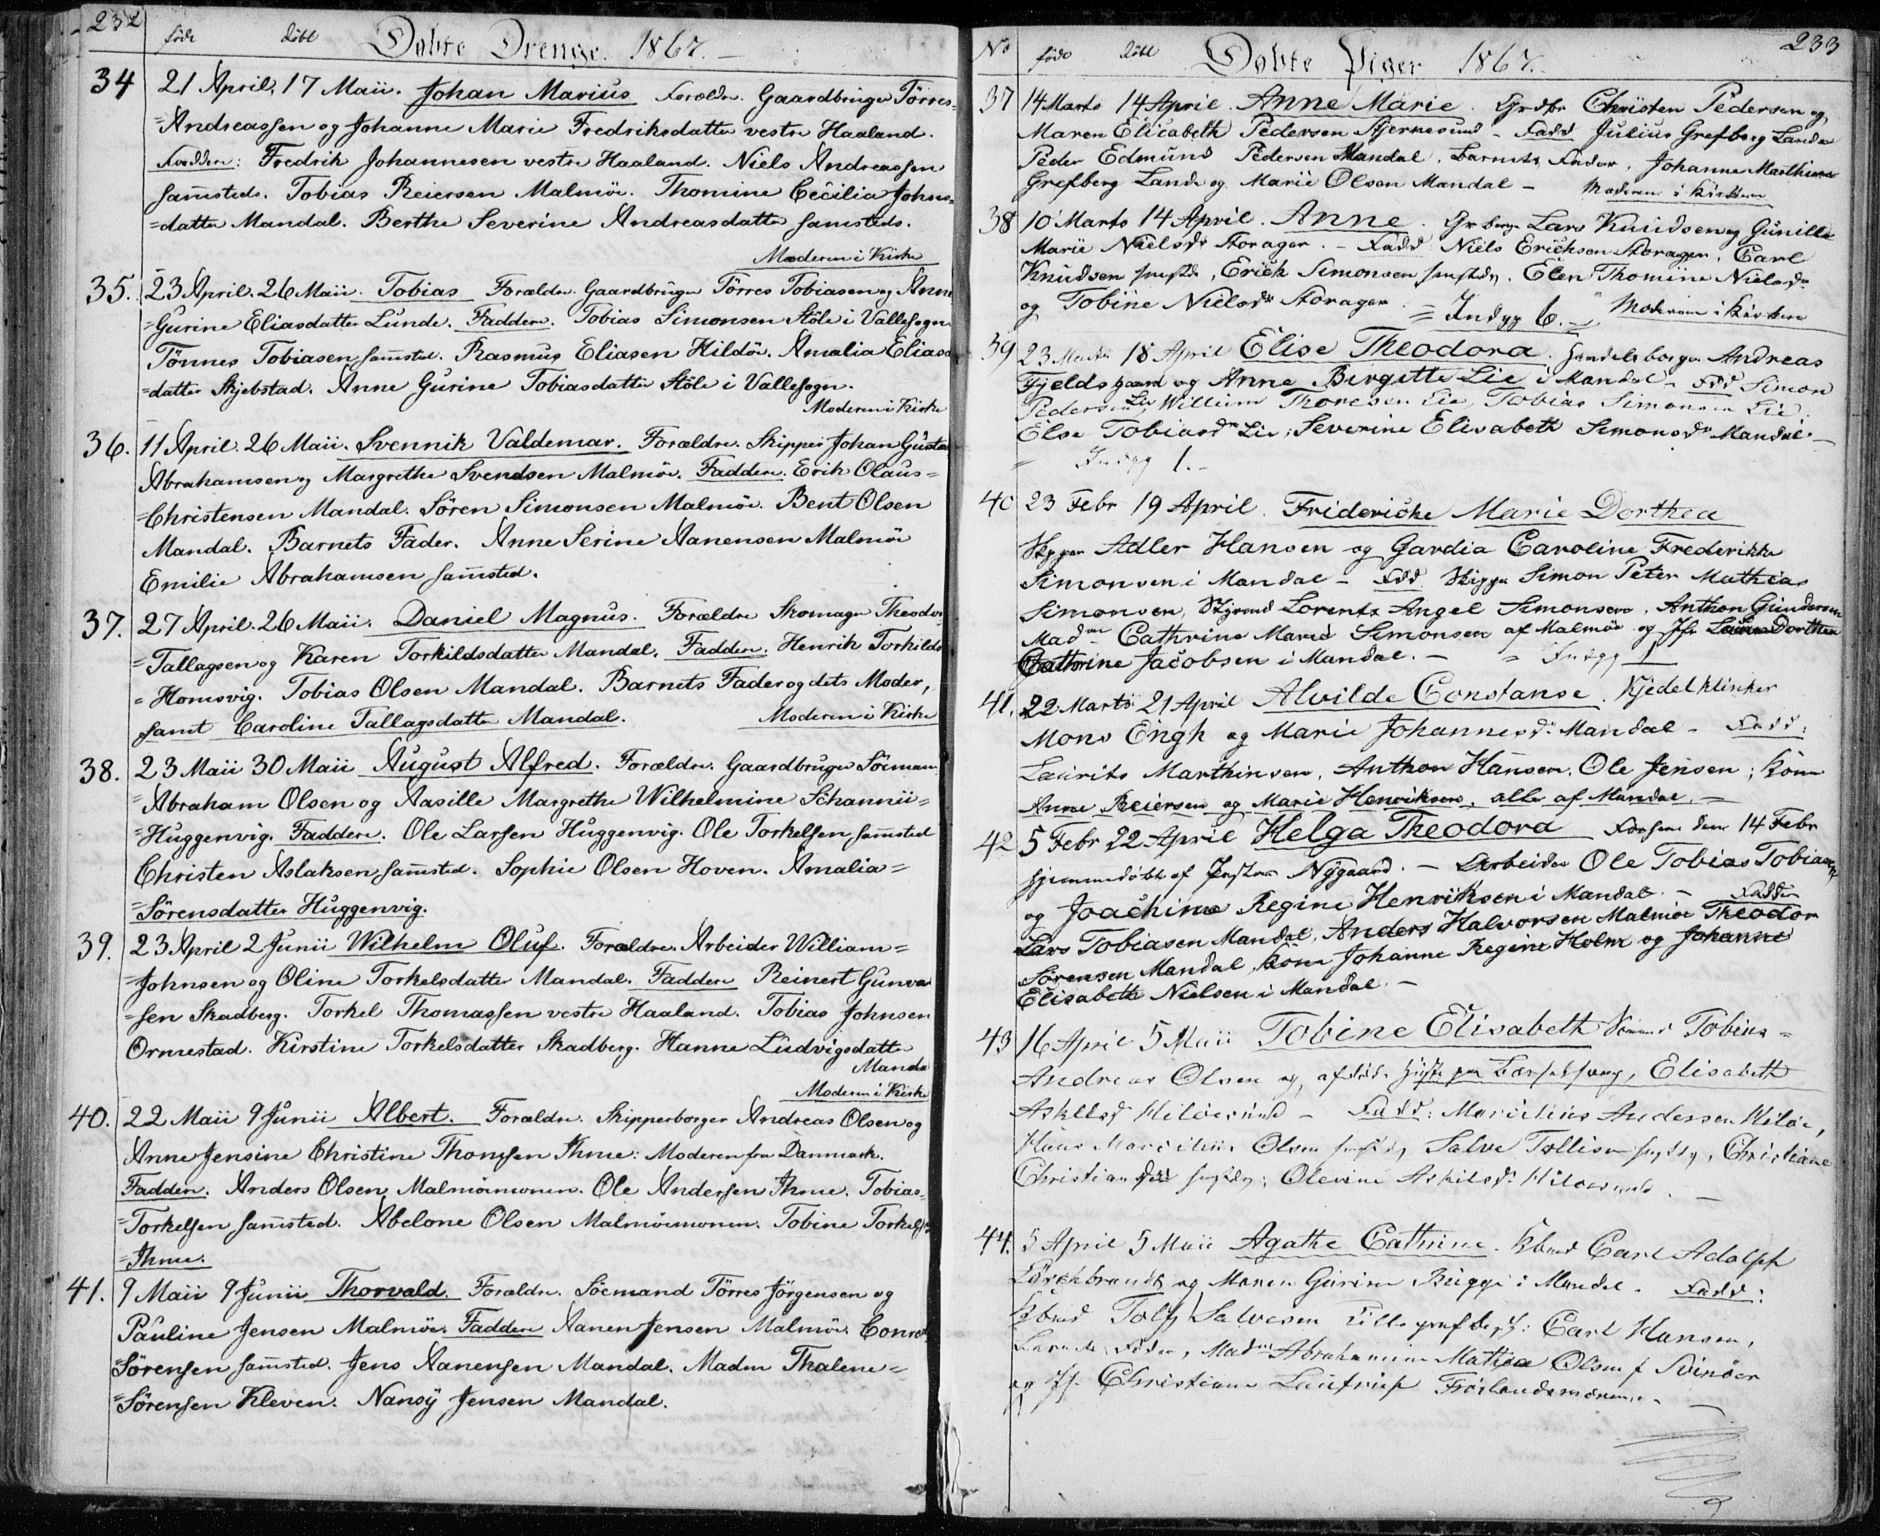 232
føde døbt Døbte Drenge. 1867.
34 21 April, 17 Maii. Johan Marius Forældre. Gaardbruger Törres=
=Andreassen og Johanne Marie Fredriksdatter vestre Haaland.
Faddere: Fredrik Johannesen vestre Haaland. Niels Andreassen
samsteds. Tobias Reiersen Malmöe. Thomine Cecilia Johns=
=datter Mandal. Berthe Severine Andreasdatter samsteds.
Moderen i Kirke
35. 23 April. 26 Maii. Tobias Forældre. Gaardbruger Törres Tobiasen og Anne
=Gurine Eliasdatter Lunde. Faddere. Tobias Simonsen Stöle i Vallesogn
Tönnes Tobiasen samsted. Rasmus Eliasen Hildöe. Amalia Elias
=datter Skjebstad. Anne Gurine Tobiasdatter Stöle i Vallesogn.
Moderen i Kirke
36. 11 April. 26 Maii. Svennik Valdemar. Forældre. Skipper Johan Gustav
Abrahamsen og Margrethe Svendsen Malmöe. Faddere. Erik Olaus=
=Christensen Mandal. Sören Simonsen Malmöe. Bent Olsen
Mandal. Barnets Fader. Anne Serine Aanensen Malmöe
Emilie Abrahamsen samsted.
37. 27 April. 26 Maii. Daniel Magnus. Forældre Skomager Theodor
=Tallagsen og Karen Torkildsdatter Mandal. Faddere. Henrik Torkilds
=Homsvig. Tobias Olsen Mandal. Barnets Fader og dets Moder,
samt Caroline Tallagsdatter Mandal. Moderen i Kirke
38. 23 Maii 30 Maii August Alfred. Forældre. Gaardbruger Söeman
=Abraham Olsen og Aasille Margrethe Wilhelmine Schannii=
=Huggenvig. Faddere. Ole Larsen Huggenvig. Ole Torkelsen samsted
Christen Aslaksen samsted. Sophie Olsen Hoven. Amalia=
=Sörensdatter Huggenvig.
39. 23 April 2 Junii Wilhelm Oluf. Forældre. Arbeider William=
=Johnsen og Oline Torkelsdatter Mandal. Faddere Reinert Gunva
=sen Skadberg. Torkel Thomassen vestre Haaland. Tobias Johnsen
Ormestad. Kirstine Torkelsdatter Skadberg. Hanne Ludvigsdatter
Manda
Moderen i Kirke
40. 22 Maii 9 Junii Albert. Forældre. Skipperborger Andreas Olsen og
Anne Jensine Christine Thomsen Ihme: Moderen fra Danmark.
Faddere. Anders Olsen Malmöemonen. Ole Andersen Ihme. Tobias=
=Torkelsen samsted. Abelone Olsen Malmöemonen. Tobine Torkels
=Ihme.
41. 9 Maii 9 Junii Thorvald. Forældre. Söemand Törres Jörgensen og
Pauline Jensen Malmöe. Faddere Aanen Jensen Malmöe. Conrad
=Sörensen samsted. Jens Aanensen Mandal. Madm Thalene=
=Sörensen Kleven. Nansy Jensen Mandal.
233
No føde døbt Døbte Piger 1867.
37 14 Marts 14 April. Anne Marie. Christen Pedersen og
Maren Elisabeth Pedersen Stjernesund – Fadd Julius Grefberg Lande
Peder Edmund Pedersen Mandal. Barnets Fader. Johanne Marthine
Grefberg Lande og Marie Olsen Mandal – Moderen i Kirken
38 10 Marts 14 April. Anne. Lars Knudsen og Gunille
Marie Nielsdr Storager. – Fadd Niels Ericksen Storager, Carl
Knudsen Erick Simonsen Elen Thomine Nielsdr
og Tobine Nielsdr Storager. = Indgg 6. Moderen i Kirken
39 23 Martii 18 April Elise Theodora. Handelsborger Andreas
Fjeldsgaard og Anne Birgitte Lie i Mandal – Fdd Simon
Pedersen Lie, William Thoresen Lie, Tobias Simonsen Lie,
Else Tobiasdr Lie; Severine Elisabeth Simonsdr Mandal. –
Indgg 1. –
40 23 Febr 19 April. Fridericke Marie Dorthea
Skipper Adler Hansen og Gardia Caroline Frederikke
Simonsen i Mandal – Fdd. Skipper Simon Peter Mathias
Simonsen, Styrmd Lorents Angel Simonsen, Anthon Gundersen
Madme Cathrine Marie Simonsen af Malmöe og Jfr Dorthea
Cathrine Jacobsen i Mandal. – = Indgg 1
41. 22 Martii 21 April Alvilde Constanse. Kjedelklinker
Mons Engh og Marie Johannesdr Mandal – Fadd:
Laurits Marthinsen, Anthon Hansen, Ole Jensen; Kone
Anne Reiersen og Marie Henriksen, alle af Mandal. –
42 5 Febr 22 April Helga Theodora dem 14 Febr
hjemmedøbt af Nÿgaard. – Arbeider Ole Tobias Tobiasen
og Joachime Regine Henriksen i Mandal. – Fadd
Lars Tobiasen Mandal, Anders Halvorsen Malmöe Theodor
Sørensen Mandal, Kone Johanne Regine Holm og Johanne
Elisabeth Nielsen i Mandal –
43 16 April 5 Maii Tobine Elisabeth Tobias=
Andreas Olsen og Elisabeth
Askilsd Hilöesund – Fadd: Marcelius Andersen Hilöe,
Hans Olsen Salve Tollisen Christiane
Christiansd Olevine Askilsdr Hilöesund. –
44. 3 April 5 Maii Agathe Cathrine. Carl Adolph
og Maren Gurine Bugge i Mandal. Fadd:
Salvesen Carl Hansen,
Madm Abrahamine Mathea Olsen Svinöer
og Jfr Christiane –